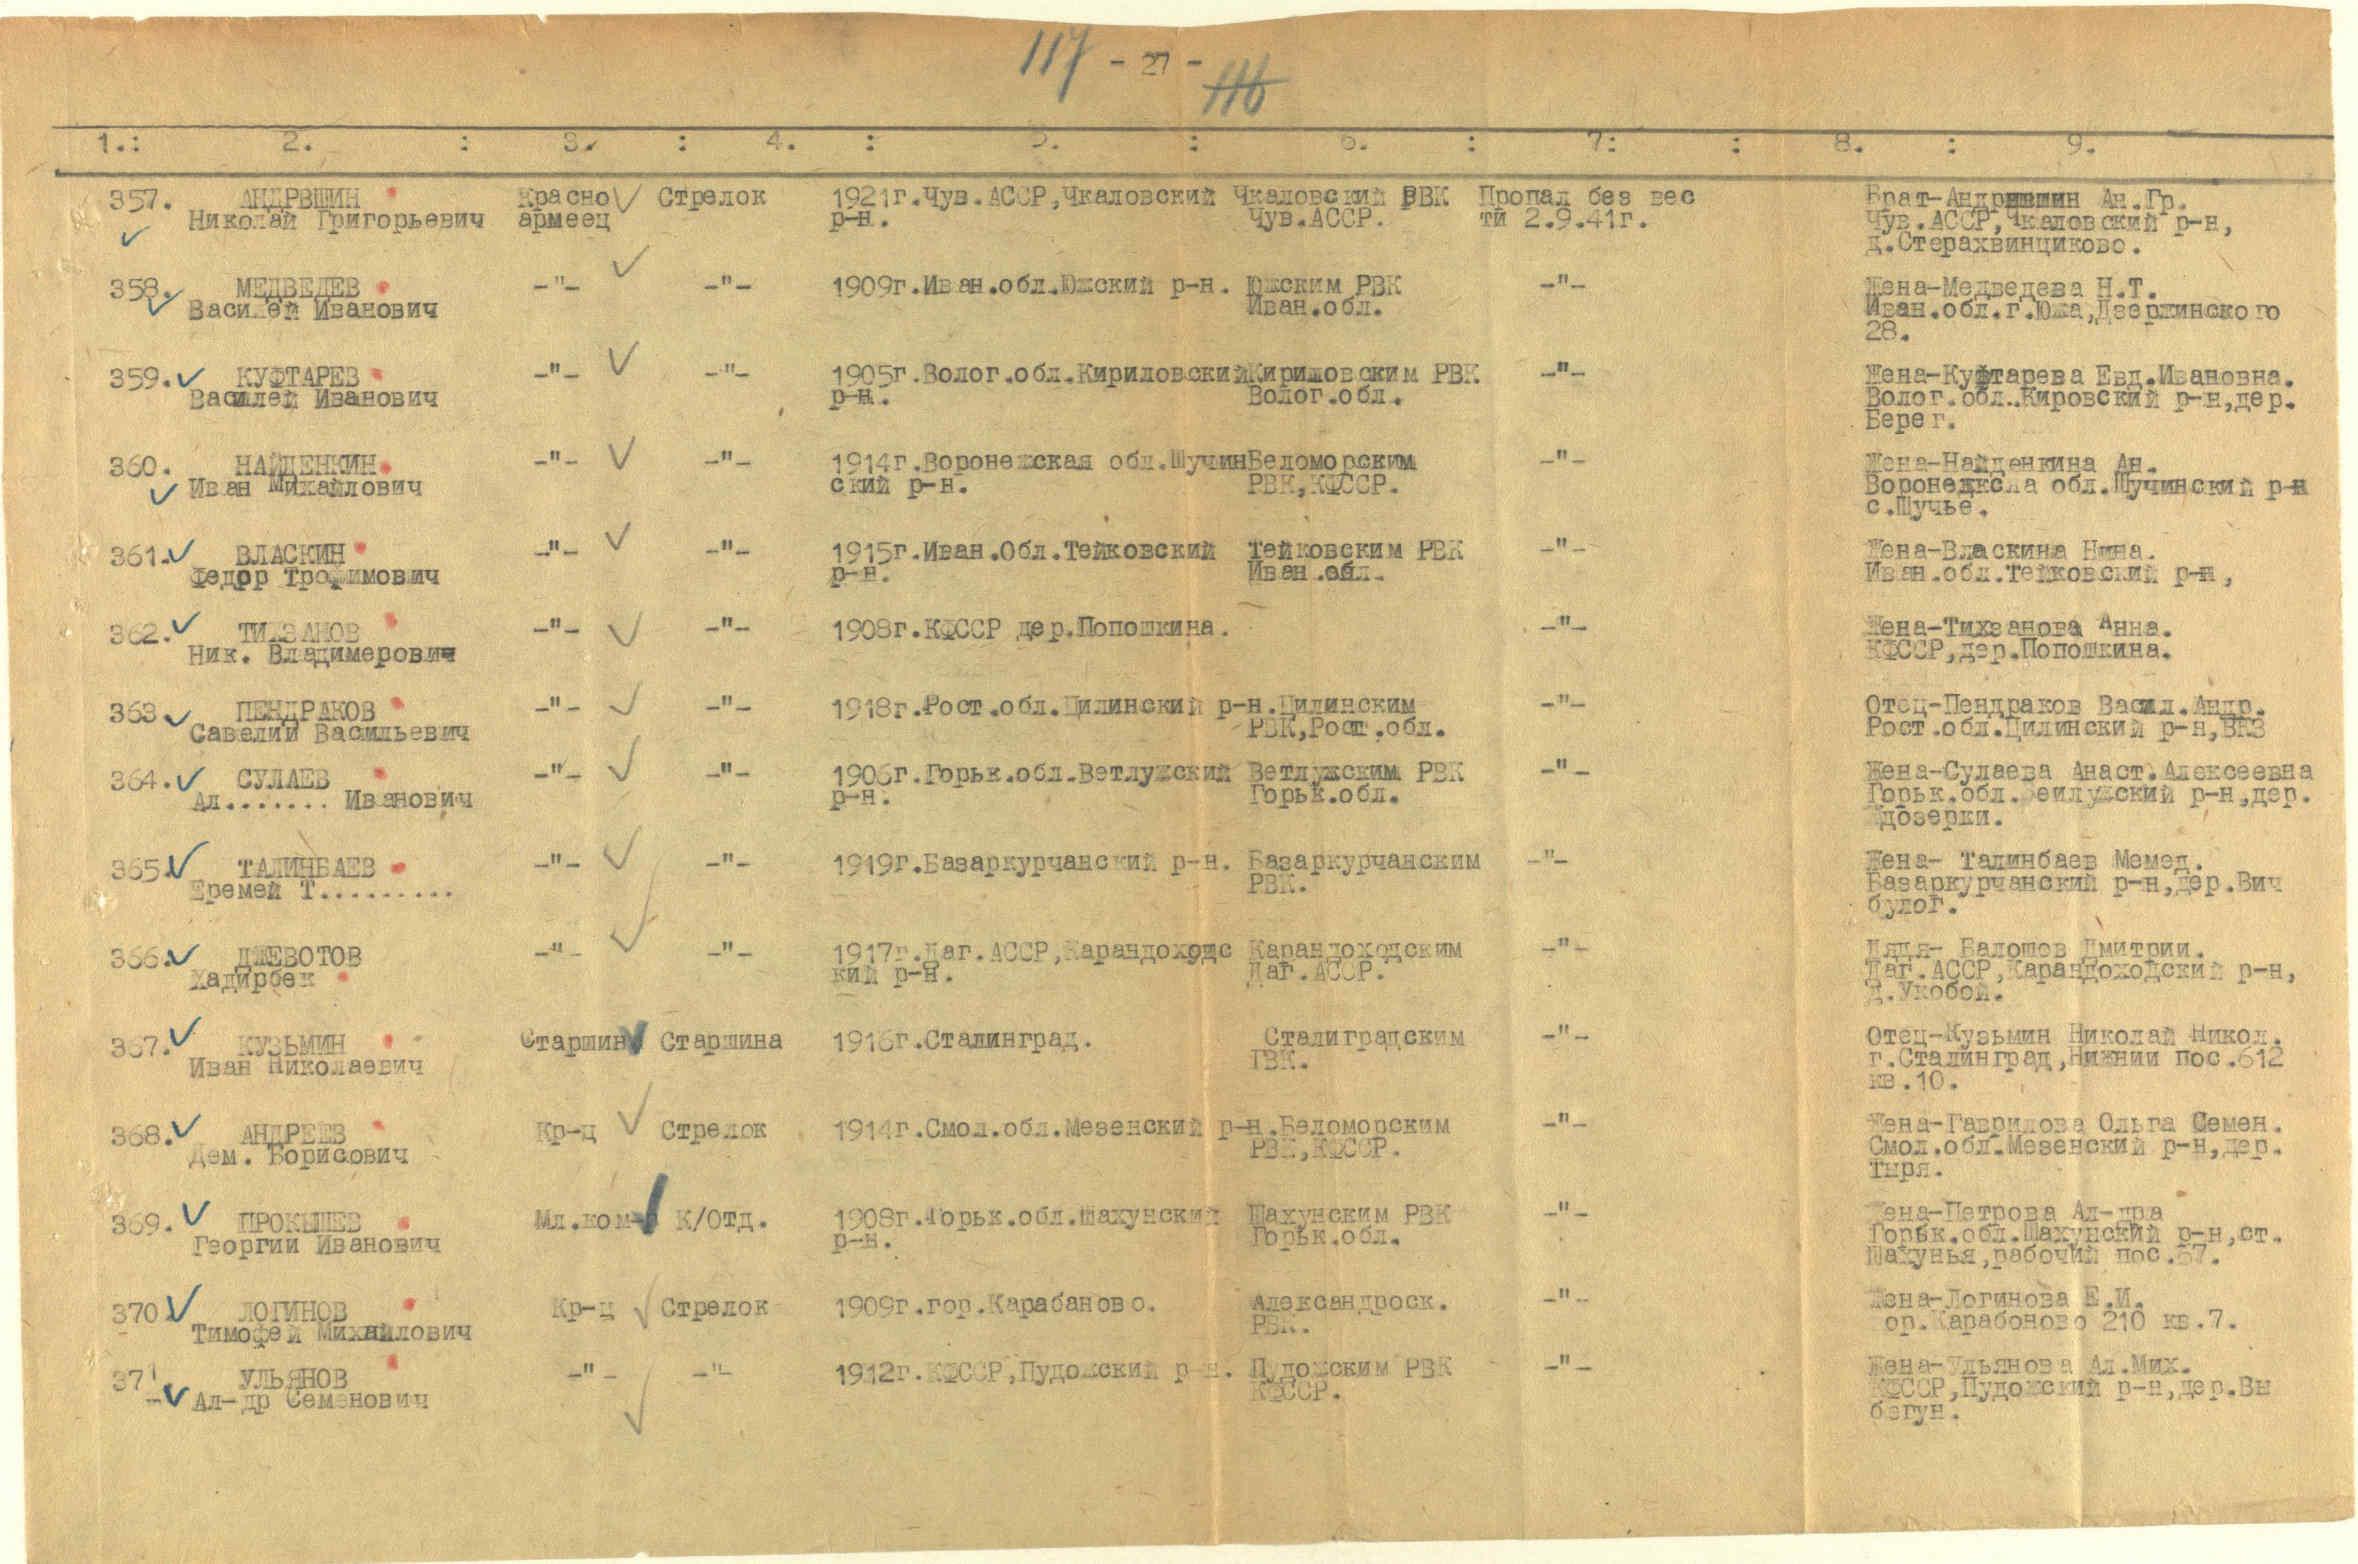 117 - 27 - 116
1.: 2. : 3. : 4. : 5. : 6. : 7: : 8. : 9.
357. АНДРВШИН Красно Стрелок 1921г.Чув.АССР,Чкаловский Чкаловский РВК Пропал без вес Брат-Андрившин Ан.Гр.
Николай Григорьевич армеец р-н. Чув.АССР. ти 2.9.41г. Чув.АССР,Чкаловский р-н,
д.Стерахвинциково.
358. МЕДВЕДЕВ -"- -"- 1909г.Иван.обл.Южский р-н. Южским РВК -"- Жена-Медведева Н.Т.
Василей Иванович Иван.обл. Иван.обл.г.Южа,Дзержинского
28.
359. КУФТАРЕВ -"- -"- 1905г.Волог.обл.Кириловский Кириловским РВК -"- Жена-Куфтарева Евд.Ивановна.
Василей Иванович р-н. Волог.обл. Волог.обл.Кировский р-н,дер.
Берег.
360. НАЙДЕНКИН -"- -"- 1914г.Воронежская обл.Шучин Беломорским -"- Жена-Найденкина Ан.
Иван Михайлович ский р-н. РВК,КФССР. Воронежскла обл.Шучинский р-н
с.Шучье.
361. ВЛАСКИН -"- -"- 1915г.Иван.Обл.Тейковский Тейковским РВК -"- Жена-Власкина Нина.
Федор Трофимович р-н. Иван.обл. Иван.обл.Тейковский р-н,
362. ТИХВАНОВ -"- -"- 1908г.КФССР дер.Попошкина. -"- Жена-Тихванова Анна.
Ник. Владимерович КФССР,дер.Попошкина.
363 ПЕНДРАКОВ -"- -"- 1918г.Рост.обл.Цилинский р-н.Цилинским -"- Отец-Пендраков Васил.Андр.
Савелии Васильевич РВК,Рост.обл. Рост.обл.Цилинский р-н,
364. СУЛАЕВ -"- -"- 1906г.Горьк.обл.Ветлужский Ветлужским РВК -"- Жена-Сулаева Анаст.Алексеевна
Ал....... Иванович р-н. Горьк.обл. Горьк.обл. р-н,дер.
365. ТАЛИНБАЕВ -"- -"- 1919г.Базаркурчанский р-н. Базаркурчанским -"- Жена- Талинбаев Мемед.
Еремей Т......... РВК. Базаркурчанский р-н,дер.Вич
булог.
366. ДЖЕВОТОВ -"- -"- 1917г.Даг.АССР,Карандоходс Карандоходским -"- Дядя- Валошов Дмитрии.
Хадирбек кий р-н. Даг.АССР. Даг.АССР,Карандоходский р-н,
д.Укобой.
367. КУЗЬМИН Старшин Старшина 1916г.Сталинград. Сталиградским -"- Отец-Кузьмин Николай Никол.
Иван Николаевич ГВК. г.Сталинград,Нижнии пос.612
кв.10.
368. АНДРЕЕВ Кр-ц Стрелок 1914г.Смол.обл.Мезенский р-н.Беломорским -"- Жена-Гаврилова Ольга Семен.
Дем. Борисович РВК,КФССР. Смол.обл.Мезенский р-н,дер.
Тыря.
369. ПРОКЫШЕВ Мл.ком- К/Отд. 1908г.Горьк.обл.Шахунский Шахунским РВК -"- Жена-Петрова Ал-дра
Георгии Иванович р-н. Горьк.обл. Горьк.обл.Шахунский р-н,ст.
Шахунья,рабочий пос.57.
370. ЛОГИНОВ Кр-ц Стрелок 1909г.гор.Карабаново. Александроск. -"- Жена-Логинова Е.И.
Тимофей Михайлович РВК. ор.Карабоново 210 кв.7.
371. УЛЬЯНОВ -"- -"- 1912г.КФССР,Пудожский р-н. Пудожским РВК -"- Жена-Ульянова Ал.Мих.
Ал-др Семенович КФССР. КФССР,Пудожский р-н,дер.Вы
бегун.